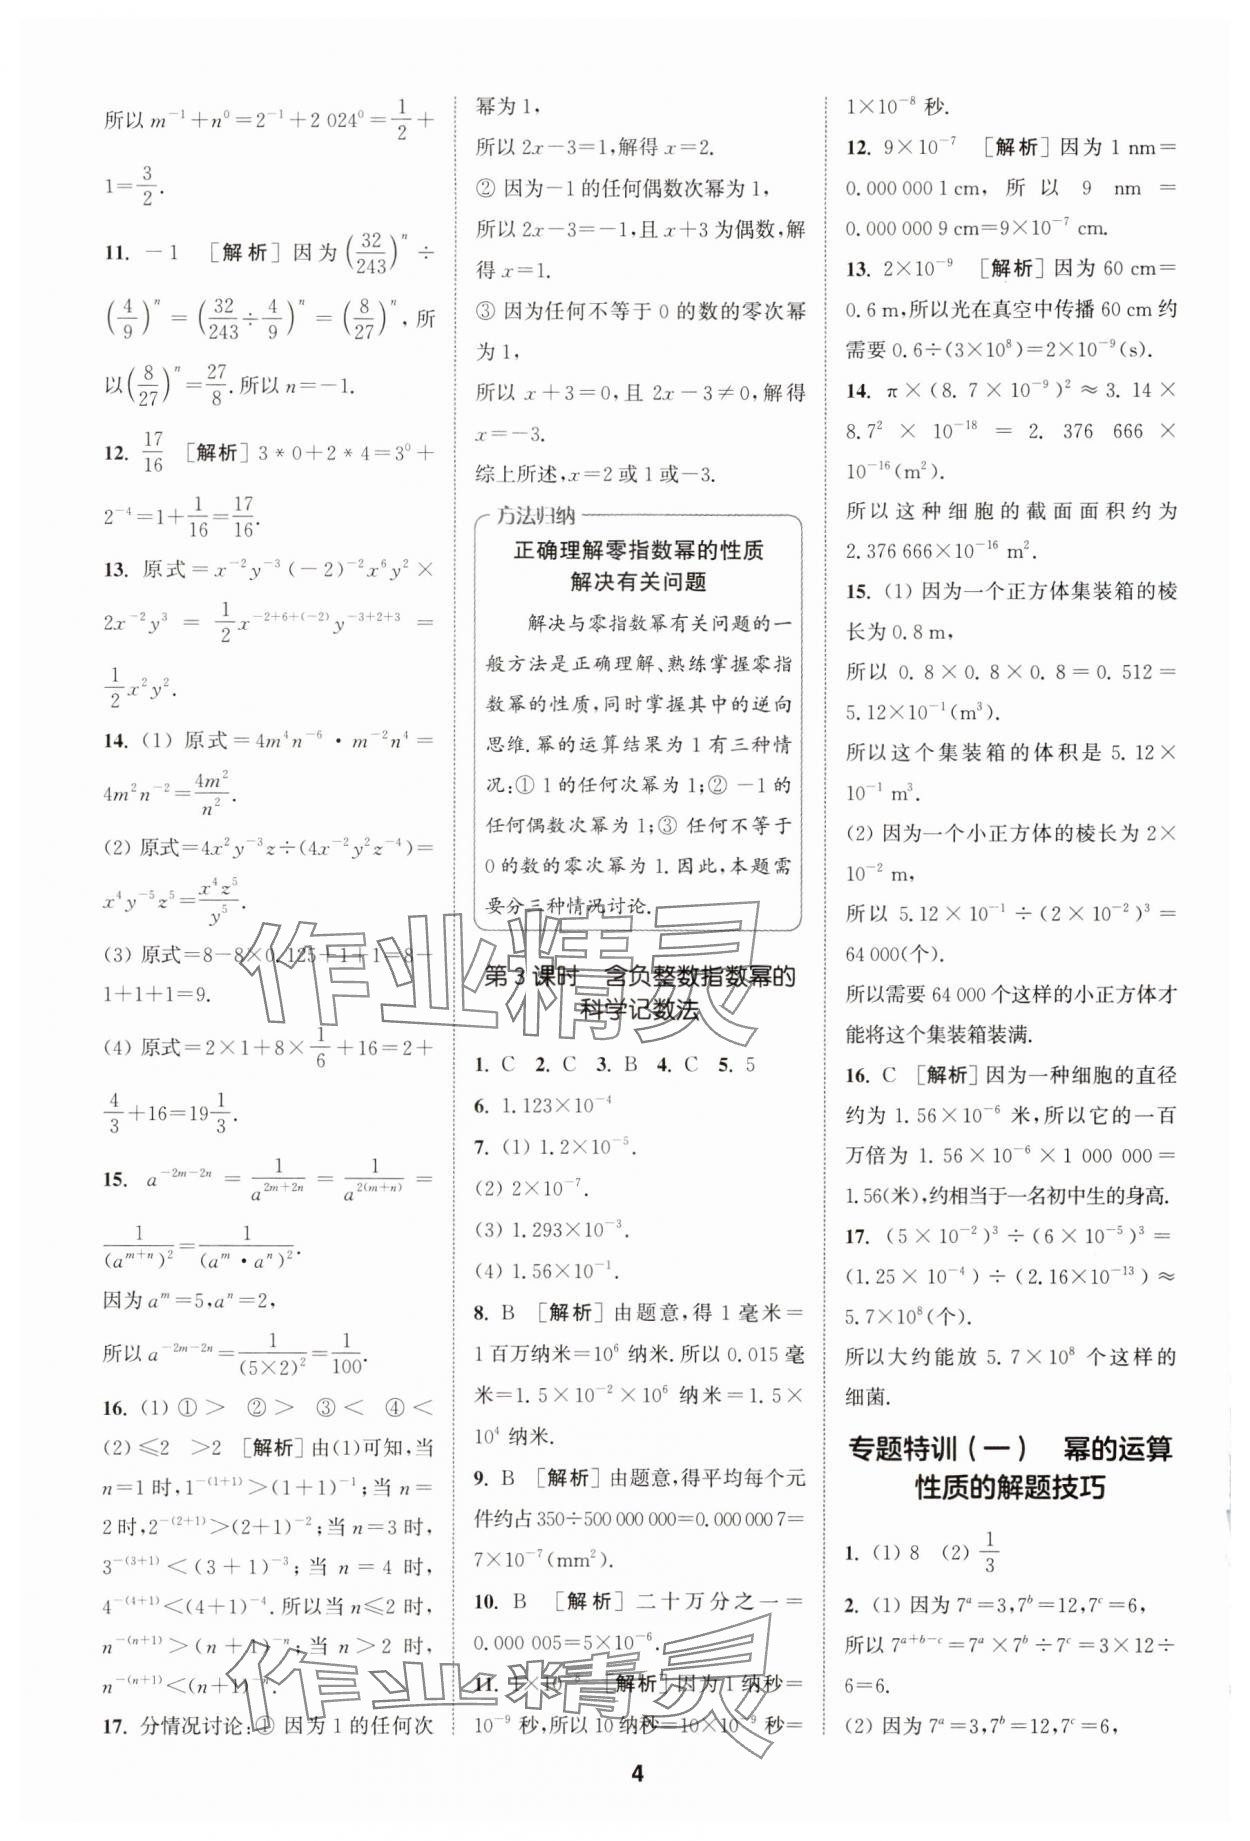 所以 m⁻¹+n⁰=2⁻¹+2 024⁰=1/2+
1=3/2.
11. -1 [解析]因为(32/243)ⁿ÷
(4/9)ⁿ=(32/243÷4/9)ⁿ=(8/27)ⁿ,所
以(8/27)ⁿ=27/8.所以 n=-1.
12. 17/16 [解析]3*0+2*4=3⁰+
2⁻⁴=1+1/16=17/16.
13. 原式=x⁻²y⁻³(-2)⁻²x⁶y²×
2x⁻²y³=1/2x^(-2+6+(-2))y^(-3+2+3)=
1/2x²y².
14. (1) 原式=4m⁴n⁻⁶·m⁻²n⁴=
4m²n⁻²=4m²/n².
(2) 原式=4x²y⁻³z÷(4x⁻²y²z⁻⁴)=
x⁴y⁻⁵z⁵=x⁴z⁵/y⁵.
(3) 原式=8-8×0.125+1+1=8-
1+1+1=9.
(4) 原式=2×1+8×1/6+16=2+
4/3+16=19 1/3.
15. a^(-2m-2n)=1/a^(2m+2n)=1/a^(2(m+n))=
1/(a^(m+n))²=1/(a^m·a^n)².
因为 a^m=5,a^n=2,
所以 a^(-2m-2n)=1/(5×2)²=1/100.
16. (1) ①> ②> ③< ④<
(2) ≤2 >2 [解析]由(1)可知,当
n=1 时,1^(-(1+1))>(1+1)⁻¹;当 n=
2 时,2^(-(2+1))>(2+1)⁻²;当 n=3 时,
3^(-(3+1))<(3+1)⁻³;当 n=4 时,
4^(-(4+1))<(4+1)⁻⁴.所以当 n≤2 时,
n^(-(n+1))>(n+1)⁻ⁿ;当 n>2 时,
n^(-(n+1))<(n+1)⁻ⁿ.
17. 分情况讨论:① 因为 1 的任何次
幂为 1,
所以 2x-3=1,解得 x=2.
② 因为-1 的任何偶数次幂为 1,
所以 2x-3=-1,且 x+3 为偶数,解
得 x=1.
③ 因为任何不等于 0 的数的零次幂
为 1,
所以 x+3=0,且 2x-3≠0,解得
x=-3.
综上所述,x=2 或 1 或-3.
方法归纳
正确理解零指数幂的性质
解决有关问题
解决与零指数幂有关问题的一
般方法是正确理解、熟练掌握零指
数幂的性质,同时掌握其中的逆向
思维.幂的运算结果为 1 有三种情
况:① 1 的任何次幂为 1;② -1 的
任何偶数次幂为 1;③ 任何不等于
0 的数的零次幂为 1.因此,本题需
要分三种情况讨论.
第 3 课时 含负整数指数幂的
科学记数法
1. C 2. C 3. B 4. C 5. 5
6. 1.123×10⁻⁴
7. (1) 1.2×10⁻⁵.
(2) 2×10⁻⁷.
(3) 1.293×10⁻³.
(4) 1.56×10⁻¹.
8. B [解析]由题意,得 1 毫米=
1 百万纳米=10⁶ 纳米.所以 0.015 毫
米=1.5×10⁻²×10⁶ 纳米=1.5×
10⁴ 纳米.
9. B [解析]由题意,得平均每个元
件约占 350÷500 000 000=0.000 000 7=
7×10⁻⁷(mm²).
10. B [解析]二十万分之一=
0.000 005=5×10⁻⁶.
11. 1×10⁻⁸ [解析]因为 1 纳秒=
10⁻⁹ 秒,所以 10 纳秒=10×10⁻⁹ 秒=
1×10⁻⁸ 秒.
12. 9×10⁻⁷ [解析]因为 1 nm=
0.000 000 1 cm,所以 9 nm=
0.000 000 9 cm=9×10⁻⁷ cm.
13. 2×10⁻⁹ [解析]因为 60 cm=
0.6 m,所以光在真空中传播 60 cm 约
需要 0.6÷(3×10⁸)=2×10⁻⁹(s).
14. π×(8.7×10⁻⁹)²≈3.14×
8.7²×10⁻¹⁸=2.376 666×
10⁻¹⁶(m²).
所以这种细胞的截面面积约为
2.376 666×10⁻¹⁶ m².
15. (1) 因为一个正方体集装箱的棱
长为 0.8 m,
所以 0.8×0.8×0.8=0.512=
5.12×10⁻¹(m³).
所以这个集装箱的体积是 5.12×
10⁻¹ m³.
(2) 因为一个小正方体的棱长为 2×
10⁻² m,
所以 5.12×10⁻¹÷(2×10⁻²)³=
64 000(个).
所以需要 64 000 个这样的小正方体才
能将这个集装箱装满.
16. C [解析]因为一种细胞的直径
约为 1.56×10⁻⁶ 米,所以它的一百
万倍为 1.56×10⁻⁶×1 000 000=
1.56(米),约相当于一名初中生的身高.
17. (5×10⁻²)³÷(6×10⁻⁵)³=
(1.25×10⁻⁴)÷(2.16×10⁻¹³)≈
5.7×10⁸(个).
所以大约能放 5.7×10⁸ 个这样的
细菌.
专题特训(一) 幂的运算
性质的解题技巧
1. (1) 8 (2) 1/3
2. (1) 因为 7^a=3,7^b=12,7^c=6,
所以 7^(a+b-c)=7^a×7^b÷7^c=3×12÷
6=6.
(2) 因为 7^a=3,7^b=12,7^c=6,
4
作业精灵
作业精灵